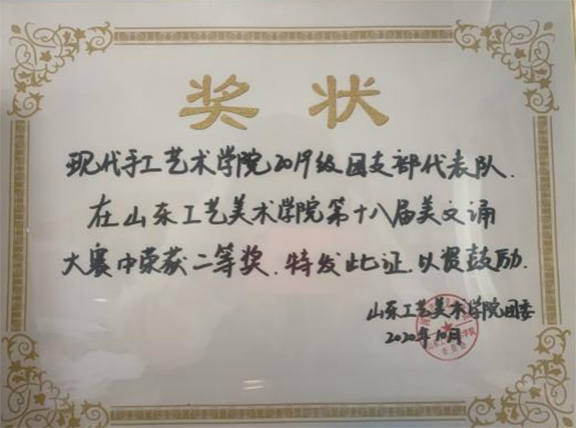 奖状
现代手工艺术学院2019级团支部代表队.
在山东工艺美术学院第十八届美文诵
大赛中荣获二等奖.特发此证.以资鼓励.
山东工艺美术学院团委
2020年10月